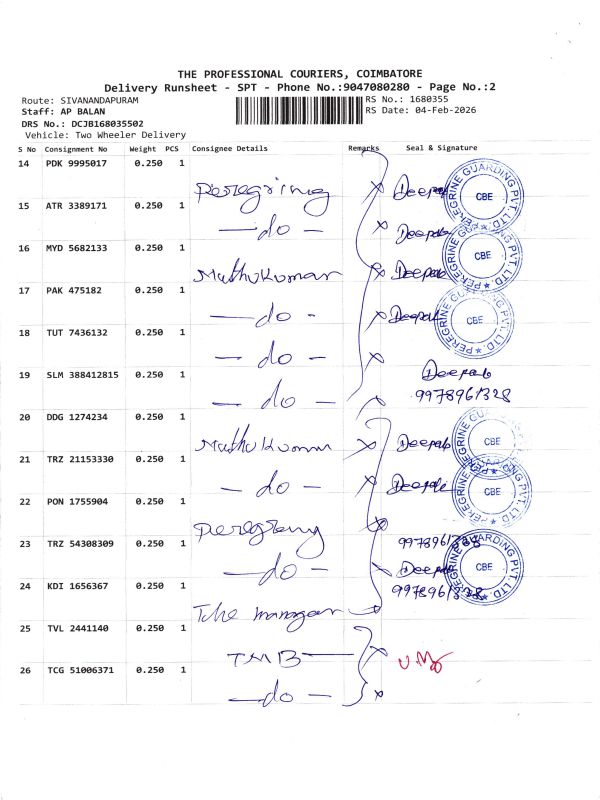 THE PROFESSIONAL COURIERS, COIMBATORE
Delivery Runsheet - SPT - Phone No.:9047080280 - Page No.:2
Route: SIVANANDAPURAM RS No.: 1680355
Staff: AP BALAN RS Date: 04-Feb-2026
DRS No.: DCJB168035502
Vehicle: Two Wheeler Delivery
S No Consignment No Weight PCS Consignee Details Remarks Seal & Signature
14 PDK 9995017 0.250 1
Deepak
PEREGRINE GUARDING PVT. LTD. CBE
15 ATR 3389171 0.250 1
— do — Deepak
16 MYD 5682133 0.250 1
PEREGRINE GUARDING PVT. LTD. CBE
Muthukumar Deepak
17 PAK 475182 0.250 1
— do - Deepak
PEREGRINE GUARDING PVT. LTD. CBE
18 TUT 7436132 0.250 1
— do —
19 SLM 388412815 0.250 1
Deepak
— do — 9978961328
20 DDG 1274234 0.250 1
Deepak
PEREGRINE GUARDING PVT. LTD. CBE
21 TRZ 21153330 0.250 1
— do —
PEREGRINE GUARDING PVT. LTD. CBE
22 PON 1755904 0.250 1
23 TRZ 54308309 0.250 1
— do — Deepak
PEREGRINE GUARDING PVT. LTD. CBE
24 KDI 1656367 0.250 1
The manager
25 TVL 2441140 0.250 1
TMB
26 TCG 51006371 0.250 1
— do —